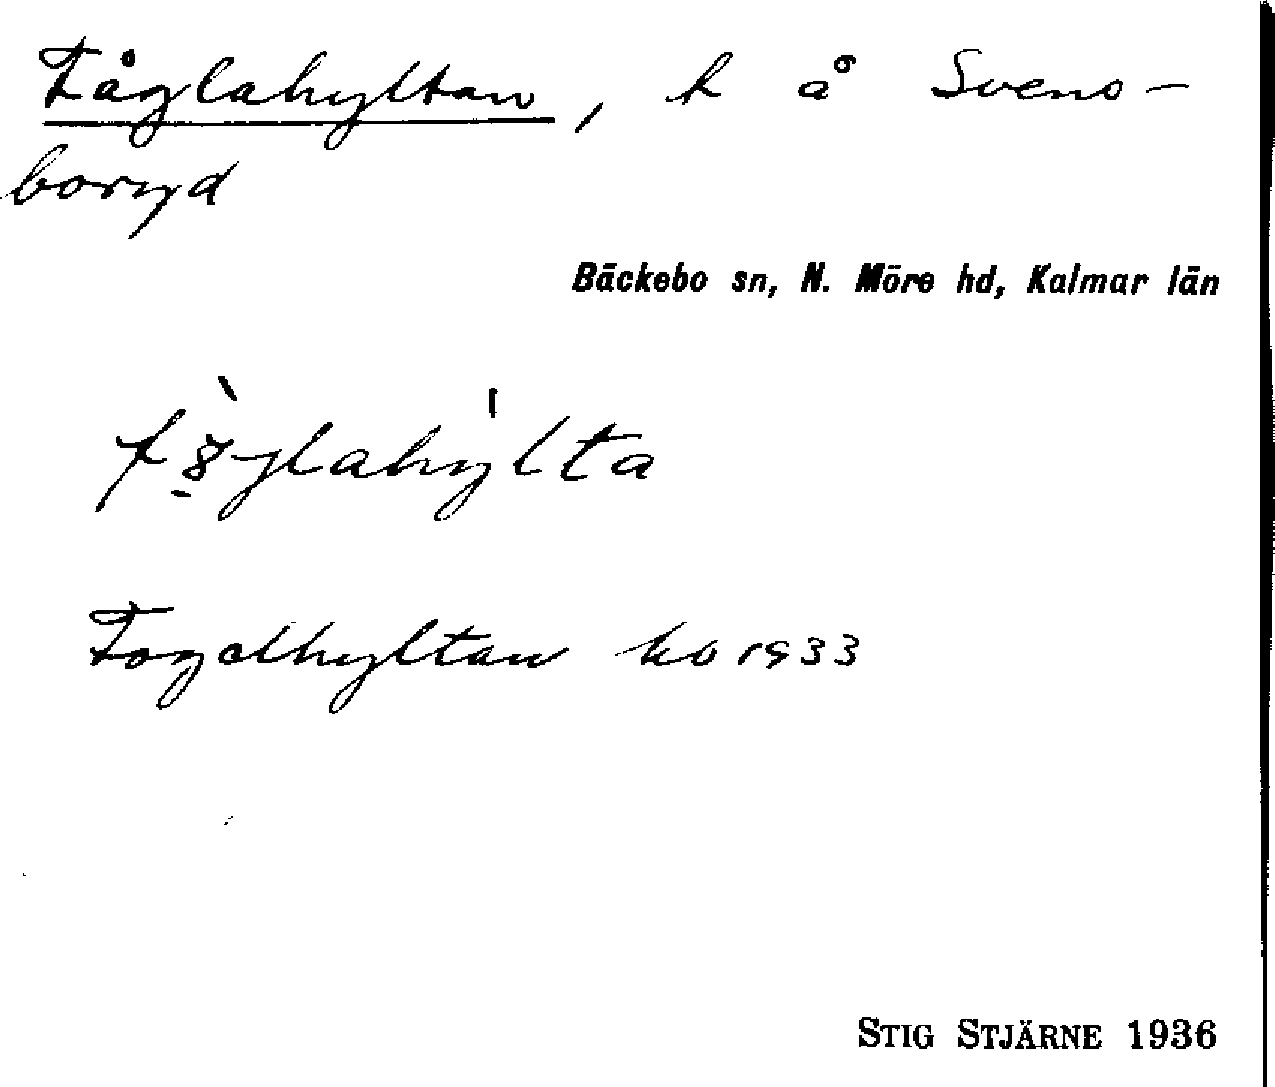 Fåglahyltan, t å Svens-
boryd
Bäckebo sn, N. Möre hd, Kalmar län
Fogdhyltan kb 1933
STIG STJÄRNE 1936